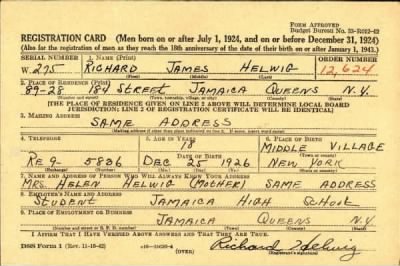 FORM APPROVED
Budget Bureau No. 33-R012-42
REGISTRATION CARD (Men born on or after July 1, 1924, and on or before December 31, 1924)
(Also for the registration of men as they reach the 18th anniversary of the date of their birth on or after January 1, 1943.)
SERIAL NUMBER 1. NAME (Print) ORDER NUMBER
W 275 RICHARD JAMES HELWIG 12,624
(First) (Middle) (Last)
2. PLACE OF RESIDENCE (Print)
89-28 184 STREET JAMAICA QUEENS N.Y.
(Number and street) (Town, township, village, or city) (County) (State)
[THE PLACE OF RESIDENCE GIVEN ON LINE 2 ABOVE WILL DETERMINE LOCAL BOARD
JURISDICTION; LINE 2 OF REGISTRATION CERTIFICATE WILL BE IDENTICAL]
3. MAILING ADDRESS
SAME ADDRESS
[Mailing address if other than place indicated on line 2. If same, insert word same]
4. TELEPHONE 5. AGE IN YEARS 6. PLACE OF BIRTH
18 MIDDLE VILLAGE
DATE OF BIRTH (Town or county)
RE 9- 5806 DEC 25 1926 NEW YORK
(Exchange) (Number) (Mo.) (Day) (Yr.) (State or country)
7. NAME AND ADDRESS OF PERSON WHO WILL ALWAYS KNOW YOUR ADDRESS
MRS. HELEN HELWIG (MOTHER) SAME ADDRESS
8. EMPLOYER'S NAME AND ADDRESS
STUDENT JAMAICA HIGH SCHOOL
9. PLACE OF EMPLOYMENT OR BUSINESS
JAMAICA QUEENS N.Y.
(Number and street or R. F. D. number) (Town) (County) (State)
I AFFIRM THAT I HAVE VERIFIED ABOVE ANSWERS AND THAT THEY ARE TRUE.
DSS Form 1 (Rev. 11-16-42) (OVER) Richard Helwig
(Registrant's signature)